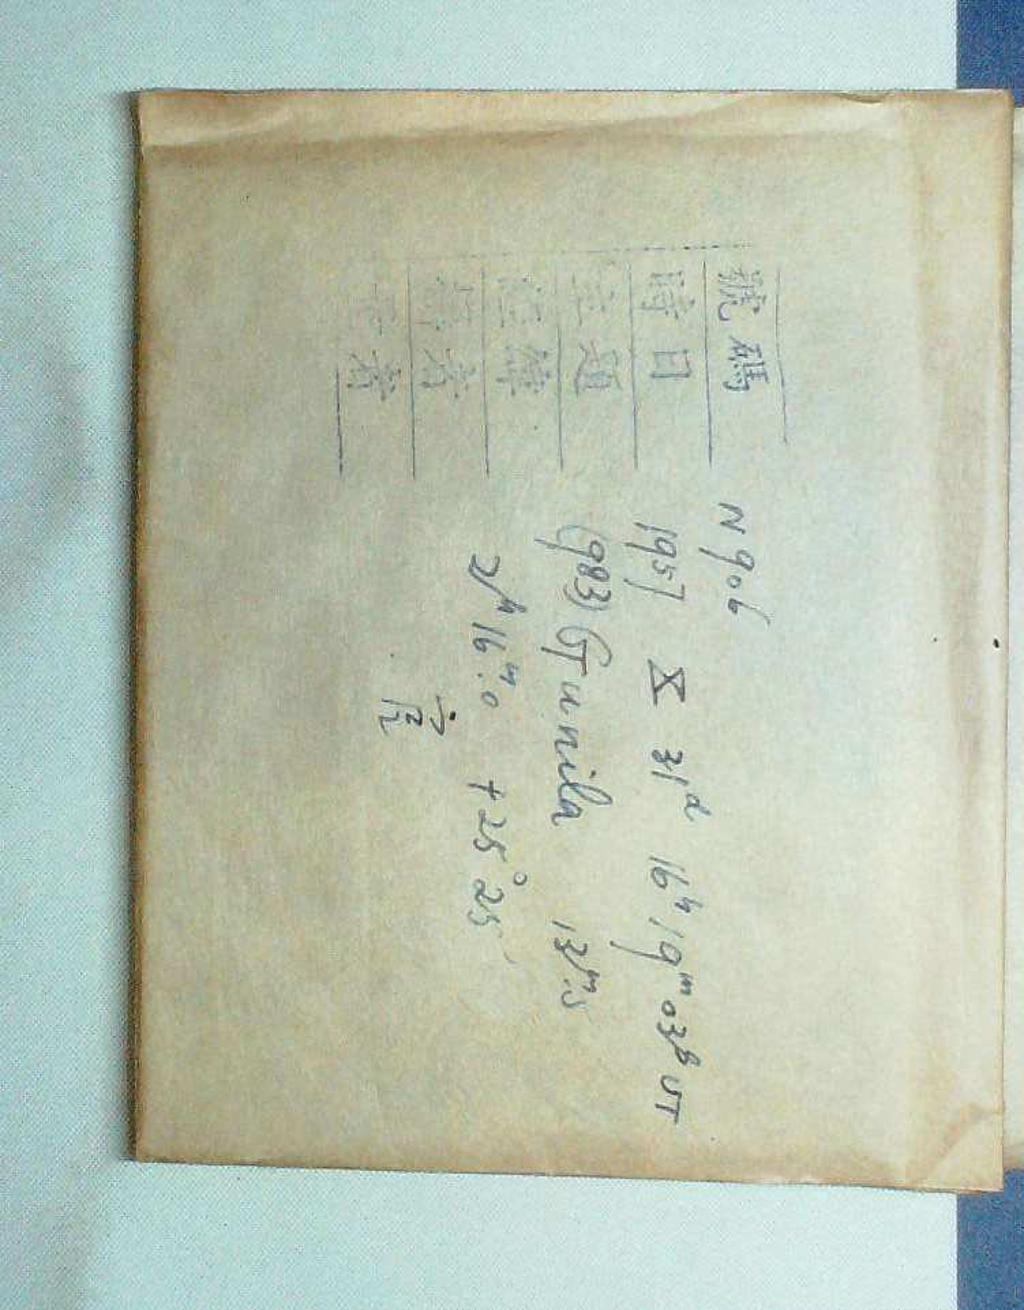 號碼 N906
時日 1957 X 31ᵈ 16ʰ 19ᵐ 03ˢ UT
主題 (983) Gunila 13ᵐ.5
經緯 2ʰ 16ᵐ.0 +25° 25′
者
者